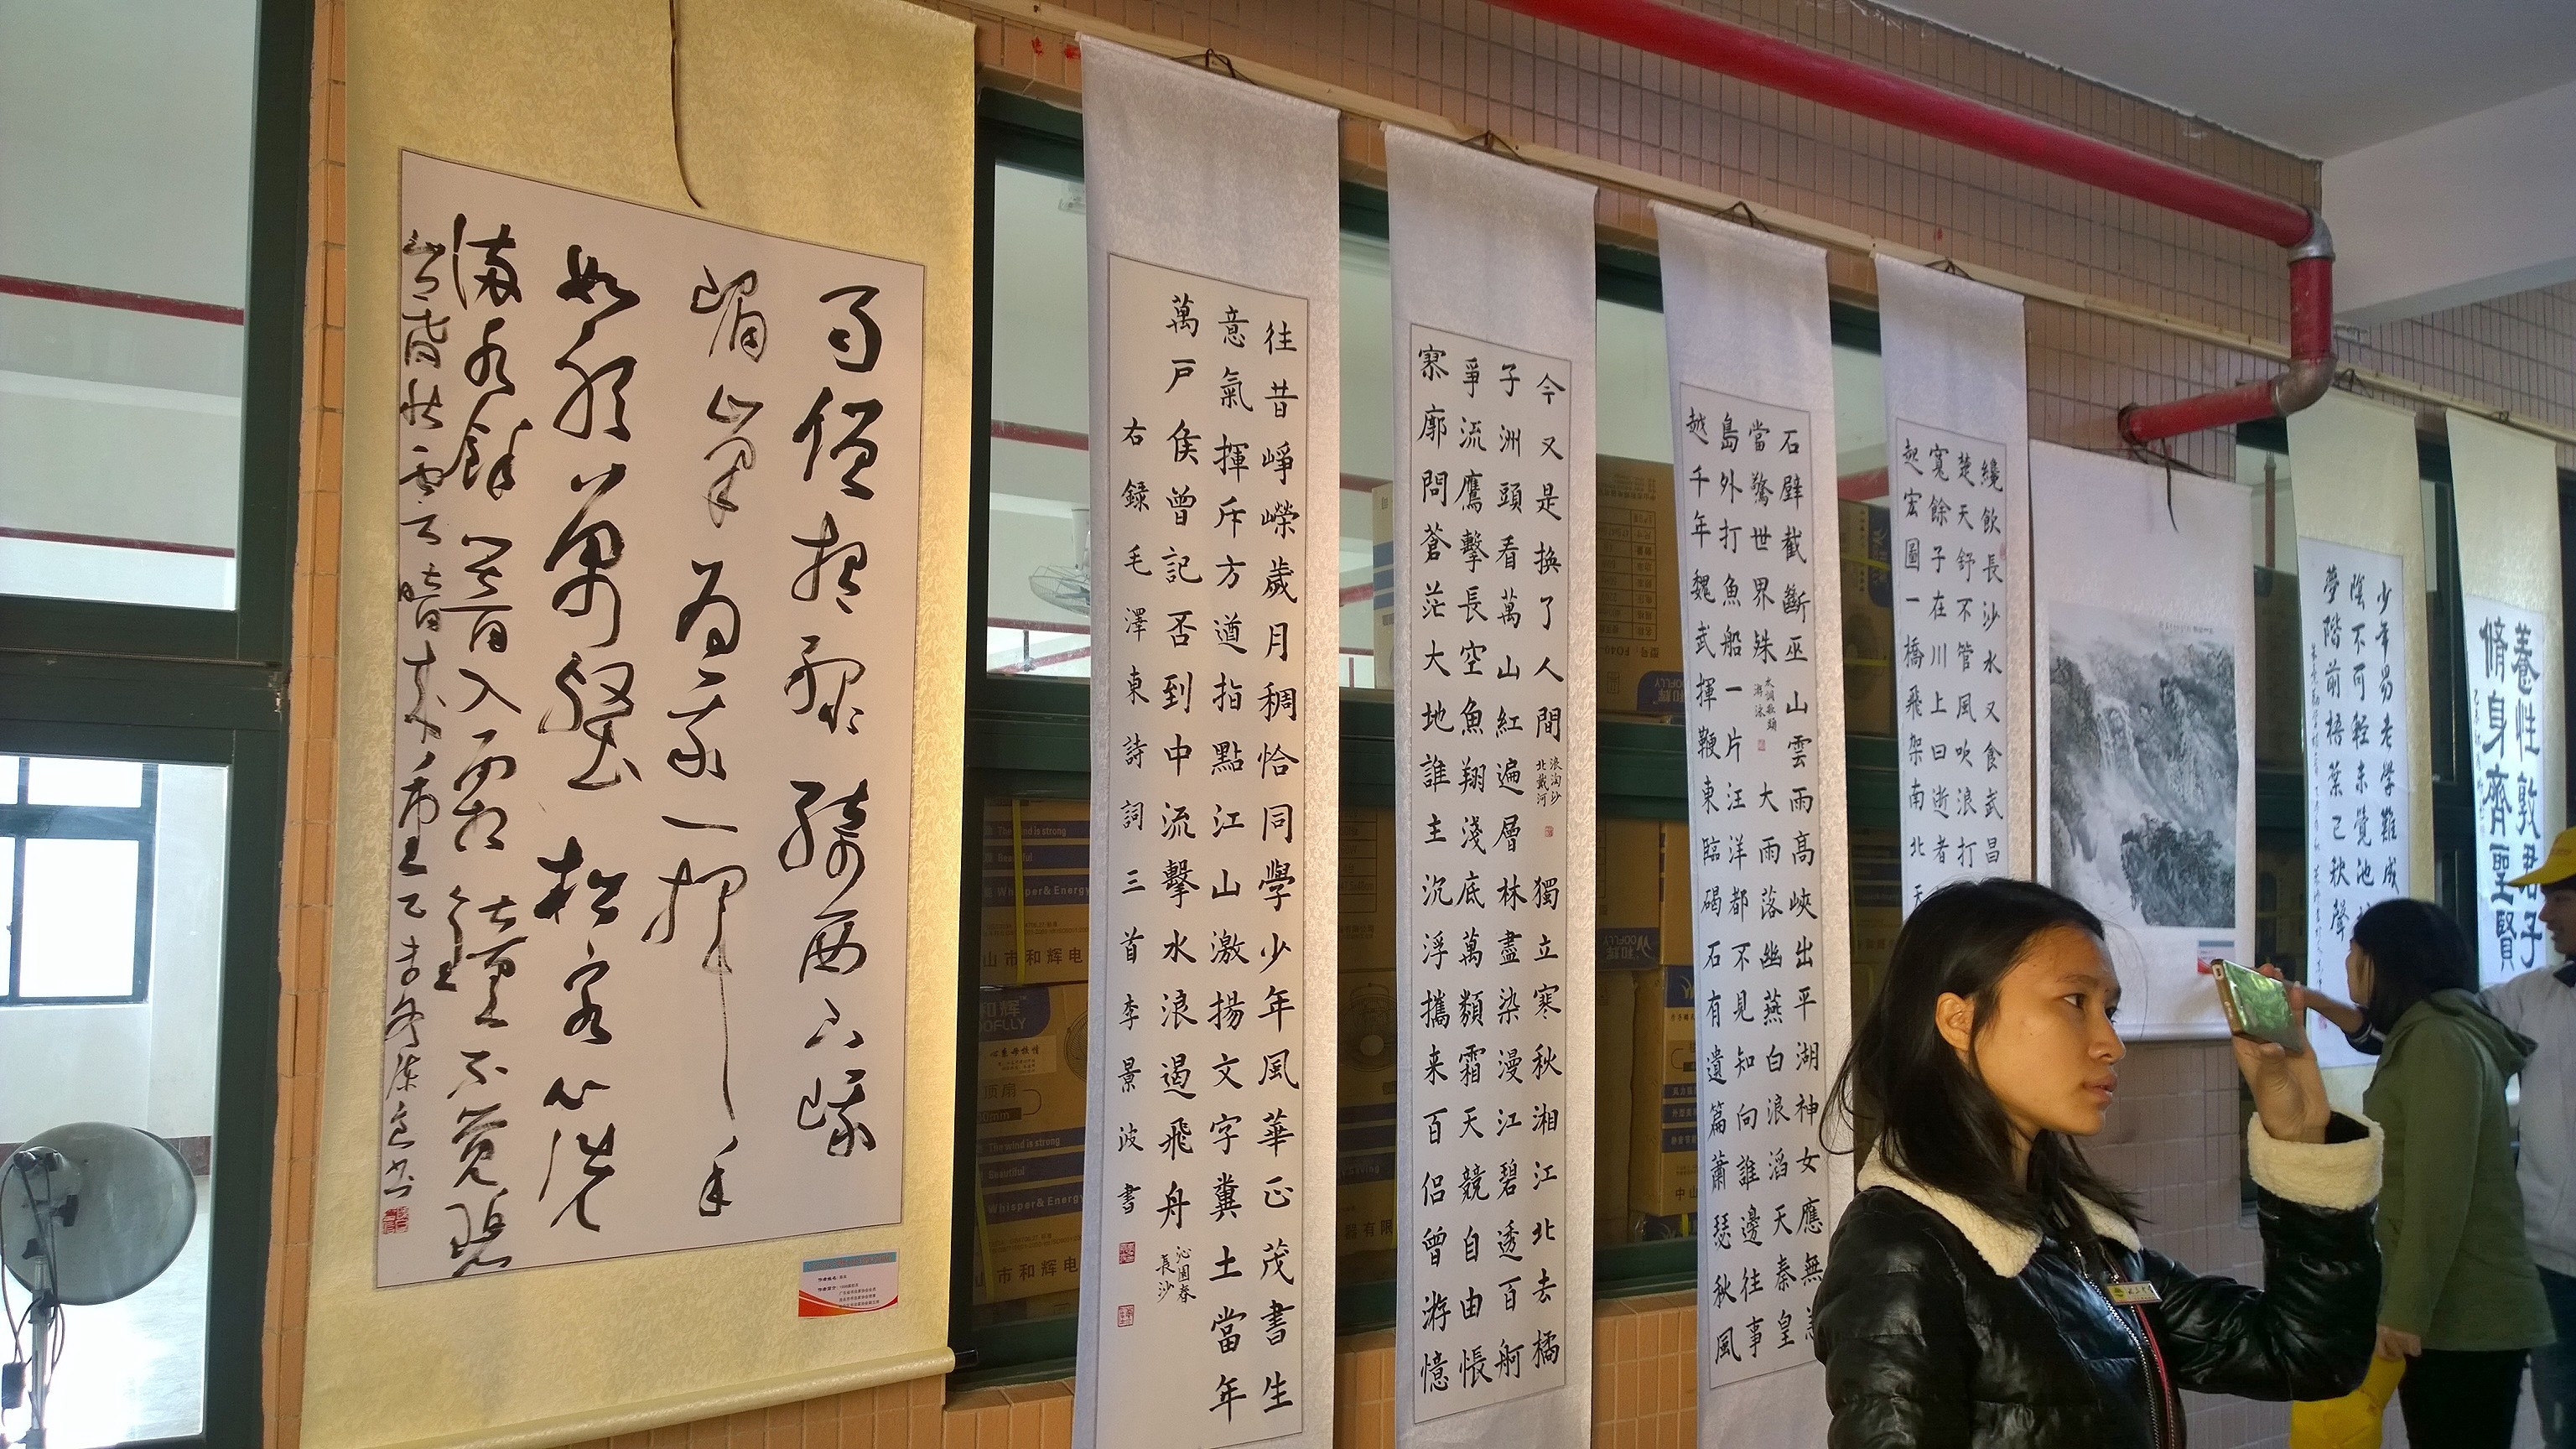 養性敦君子
脩身齊聖賢
少年易老學難成
陰不可輕未覺池
夢階前梧葉已秋聲
纔飲長沙水又食武昌
楚天舒不管風吹浪打
寬餘子在川上曰逝者
起宏圖一橋飛架南北天
石壁截斷巫山雲雨高峽出平湖神女應無恙
當驚世界殊 水調歌頭 游泳 大雨落幽燕白浪滔天秦皇
島外打魚船一片汪洋都不見知向誰邊往事
越千年魏武揮鞭東臨碣石有遺篇蕭瑟秋風
今又是換了人間 浪淘沙 北戴河 獨立寒秋湘江北去橘
子洲頭看萬山紅遍層林盡染漫江碧透百舸
爭流鷹擊長空魚翔淺底萬類霜天競自由悵
寥廓問蒼茫大地誰主沉浮攜来百侶曾游憶
往昔崢嶸歲月稠恰同學少年風華正茂書生
意氣揮斥方遒指點江山激揚文字糞土當年
萬戶侯曾記否到中流擊水浪遏飛舟 沁園春 長沙
右録毛澤東詩詞三首李景波書
蜀僧抱綠綺西下峨
嵋峯為我一揮手
如聽萬壑松客心洗
流水餘響入霜鐘不覺碧
山暮秋雲暗
The wind is strong
Beautiful
Whisper & Energy
山市和辉电
和辉
顶扇
The wind is strong
Beautiful
Whisper & Energy
山市和辉电